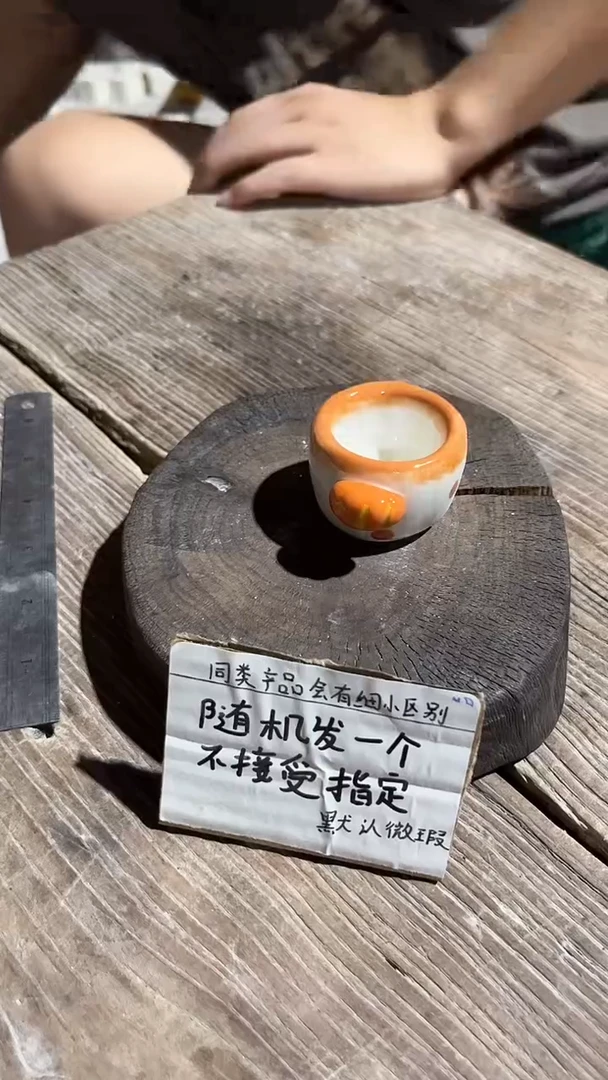 同类产品会有细小区别
随机发一个
不接受指定
默认微瑕